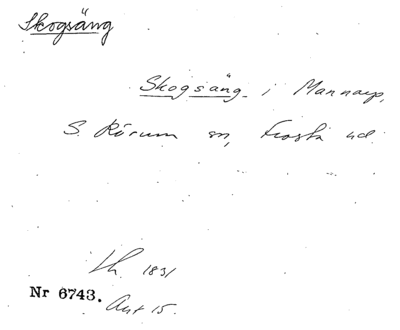 Skogsäng
Skogsäng i Mannarp,
S. Rörum sn, Frosta hd.
lh. 1831
Nr 6743.
Ant 15.